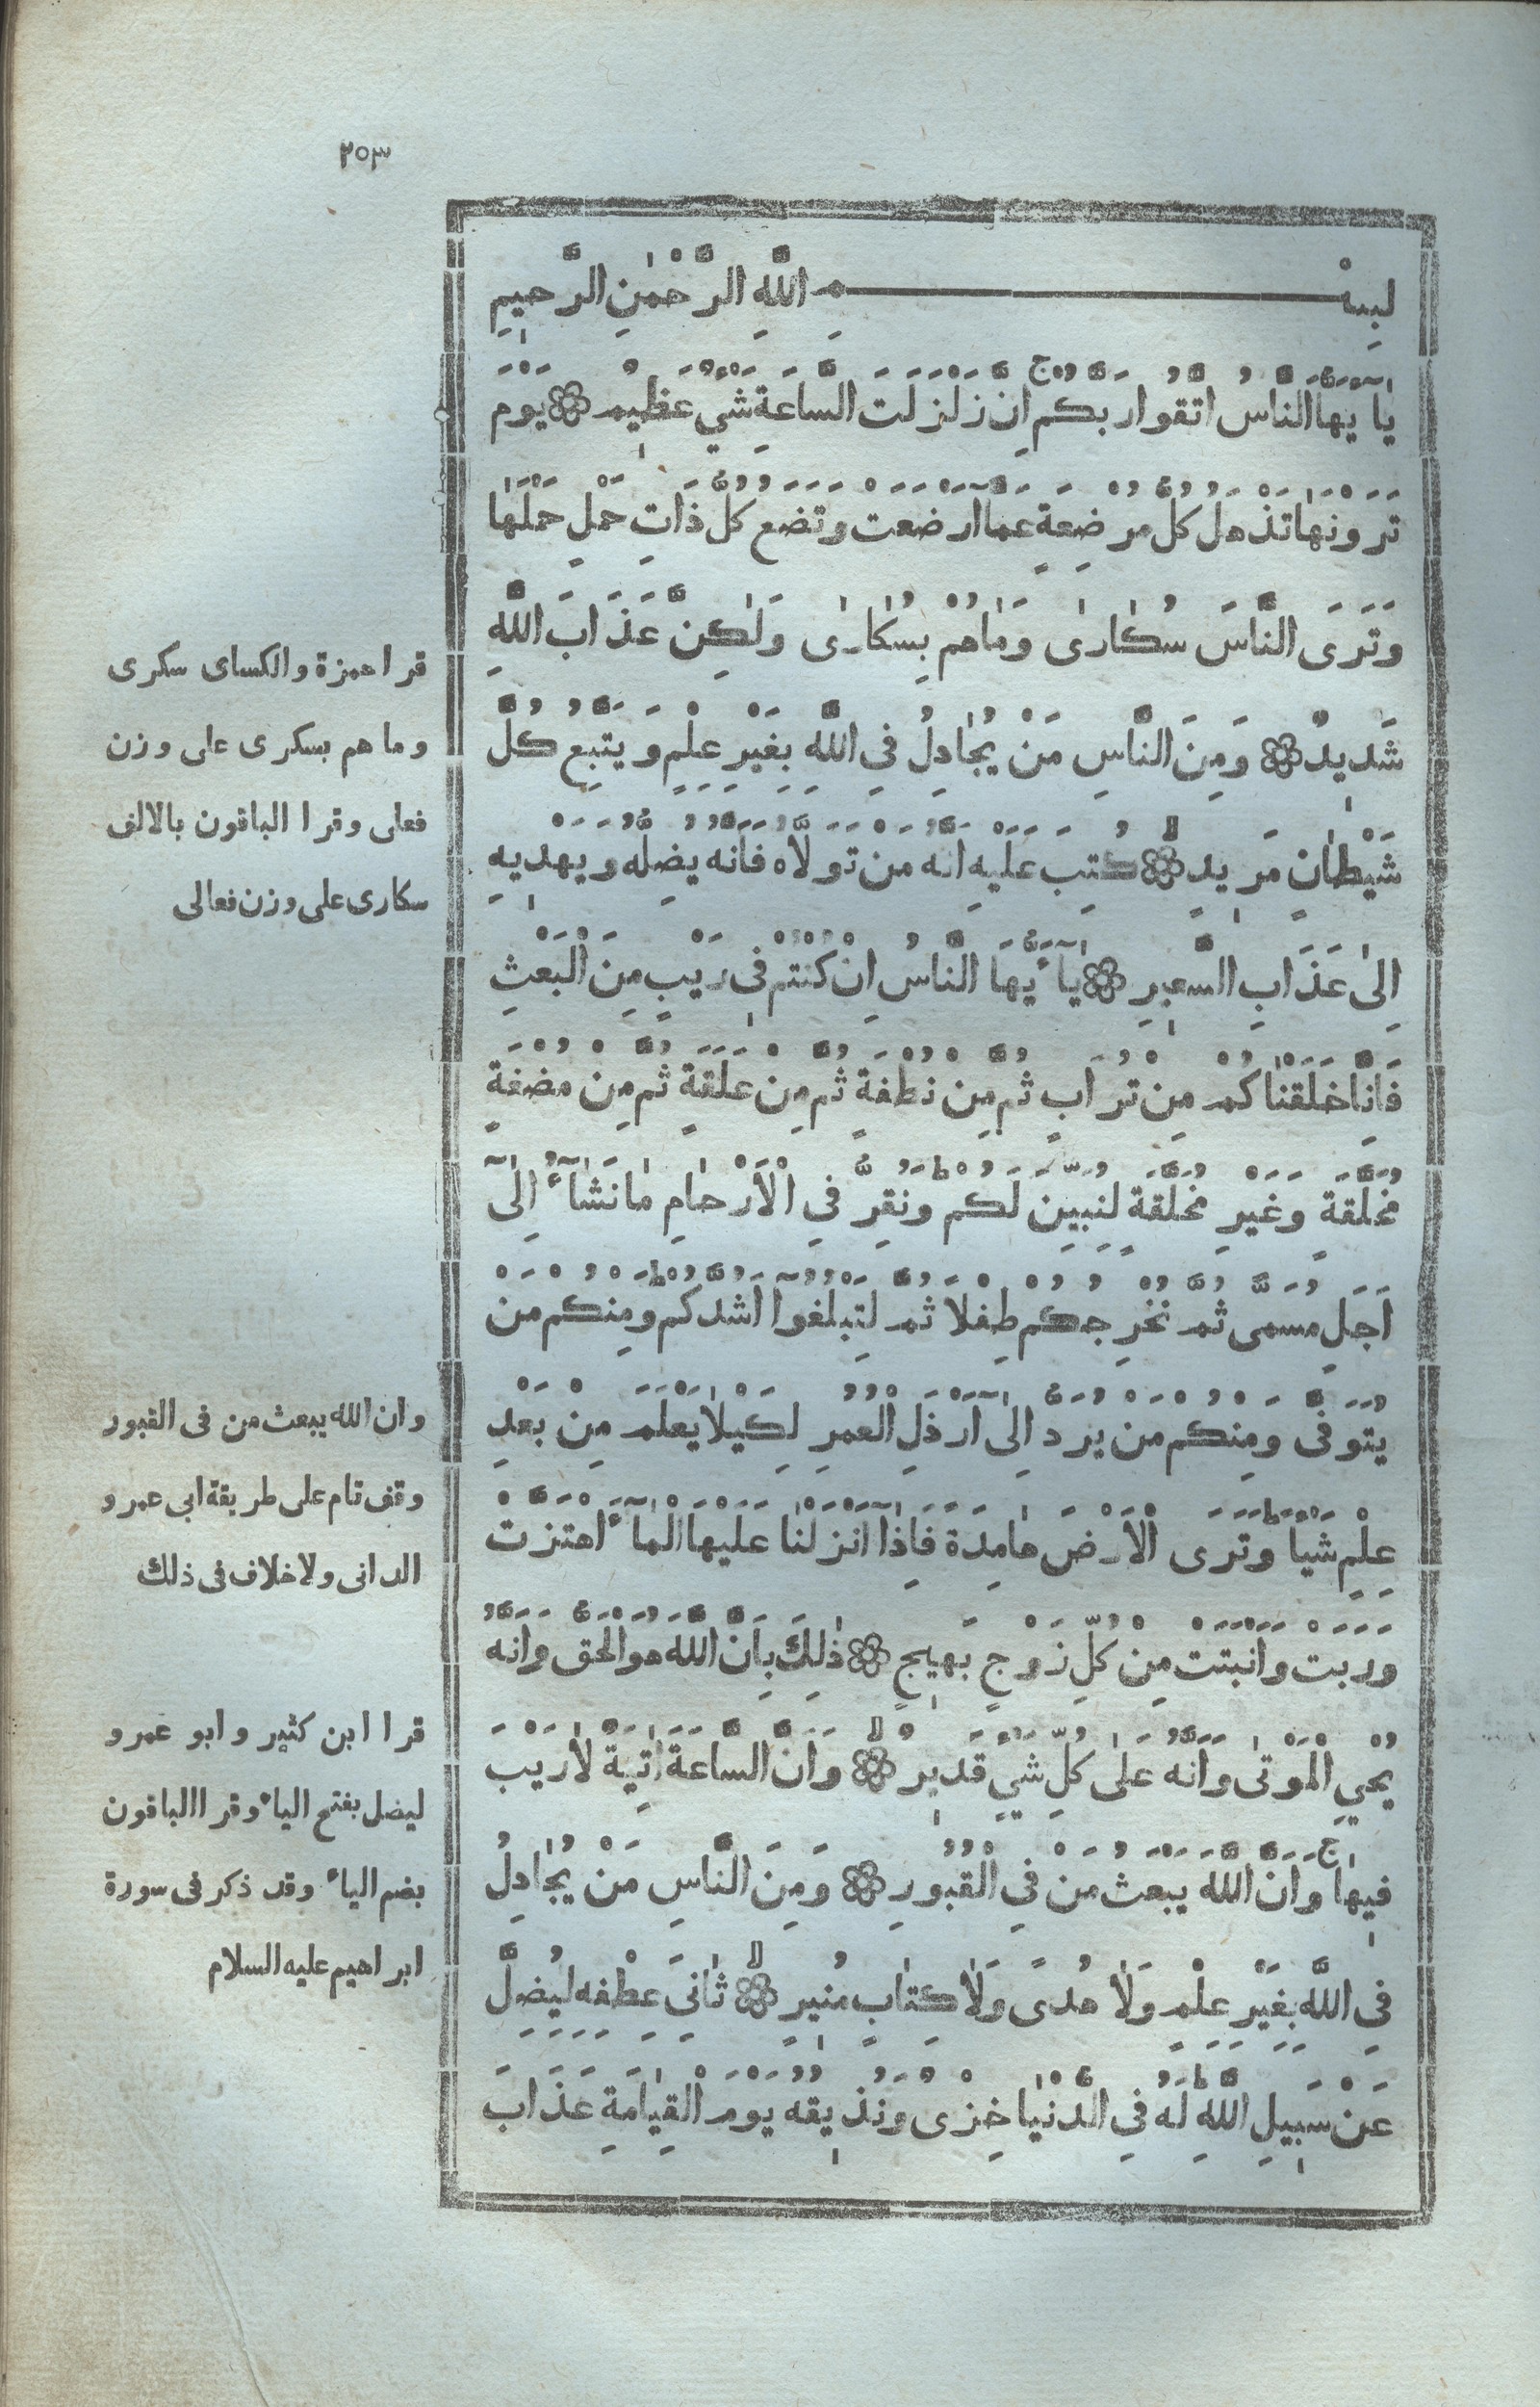 ٢٥٣
بِسْمِ اللَّهِ الرَّحْمٰنِ الرَّحِيمِ
يٰٓاَيُّهَا النَّاسُ اتَّقُوا رَبَّكُمْ ج اِنَّ زَلْزَلَتَ السَّاعَةِ شَيْءٌ عَظِيمٌ ۝ يَوْمَ
تَرَوْنَهَا تَذْهَلُ كُلُّ مُرْضِعَةٍ عَمَّآ اَرْضَعَتْ وَتَضَعُ كُلُّ ذَاتِ حَمْلٍ حَمْلَهَا
وَتَرَى النَّاسَ سُكَارٰى وَمَاهُمْ بِسُكَارٰى وَلٰكِنَّ عَذَابَ اللَّهِ
شَدِيدٌ ۝ وَمِنَ النَّاسِ مَنْ يُجَادِلُ فِي اللَّهِ بِغَيْرِ عِلْمٍ وَيَتَّبِعُ كُلَّ
شَيْطَانٍ مَرِيدٍ لا ۝ كُتِبَ عَلَيْهِ اَنَّهُ مَنْ تَوَلَّاهُ فَاَنَّهُ يُضِلُّهُ وَيَهْدِيهِ
اِلٰى عَذَابِ السَّعِيرِ ۝ يٰٓاَيُّهَا النَّاسُ اِنْ كُنْتُمْ فِي رَيْبٍ مِنَ الْبَعْثِ
فَاِنَّا خَلَقْنَاكُمْ مِنْ تُرَابٍ ثُمَّ مِنْ نُطْفَةٍ ثُمَّ مِنْ عَلَقَةٍ ثُمَّ مِنْ مُضْغَةٍ
مُخَلَّقَةٍ وَغَيْرِ مُخَلَّقَةٍ لِنُبَيِّنَ لَكُمْ ط وَنُقِرُّ فِي الْاَرْحَامِ مَانَشَآءُ اِلٰٓى
اَجَلٍ مُسَمًّى ثُمَّ نُخْرِجُكُمْ طِفْلًا ثُمَّ لِتَبْلُغُوٓا اَشُدَّكُمْ ط وَمِنْكُمْ مَنْ
يُتَوَفَّى وَمِنْكُمْ مَنْ يُرَدُّ اِلٰٓى اَرْذَلِ الْعُمُرِ لِكَيْلَا يَعْلَمَ مِنْ بَعْدِ
عِلْمٍ شَيْئًا ط وَتَرَى الْاَرْضَ هَامِدَةً فَاِذَآ اَنْزَلْنَا عَلَيْهَا الْمَآءَ اهْتَزَّتْ
وَرَبَتْ وَاَنْبَتَتْ مِنْ كُلِّ زَوْجٍ بَهِيجٍ ۝ ذٰلِكَ بِاَنَّ اللَّهَ هُوَ الْحَقُّ وَاَنَّهُ
يُحْيِ الْمَوْتٰى وَاَنَّهُ عَلٰى كُلِّ شَيْءٍ قَدِيرٌ لا ۝ وَاَنَّ السَّاعَةَ اٰتِيَةٌ لَا رَيْبَ
فِيهَا ج وَاَنَّ اللَّهَ يَبْعَثُ مَنْ فِي الْقُبُورِ ۝ وَمِنَ النَّاسِ مَنْ يُجَادِلُ
فِي اللَّهِ بِغَيْرِ عِلْمٍ وَلَا هُدًى وَلَا كِتَابٍ مُنِيرٍ لا ۝ ثَانِيَ عِطْفِهِ لِيُضِلَّ
عَنْ سَبِيلِ اللَّهِ ط لَهُ فِي الدُّنْيَا خِزْيٌ وَنُذِيقُهُ يَوْمَ الْقِيَامَةِ عَذَابَ
قرا حمزة والكساى سكرى
وما هم بسكرى على وزن
فعلى وقرا الباقون بالالف
سكارى على وزن فعالى
وان الله يبعث من فى القبور
وقف تام على طريقة ابى عمرو
الدانى ولا خلاف فى ذلك
قرا ابن كثير وابو عمرو
ليضل بفتح الياء وقرا الباقون
بضم الياء وقد ذكر فى سورة
ابراهيم عليه السلام